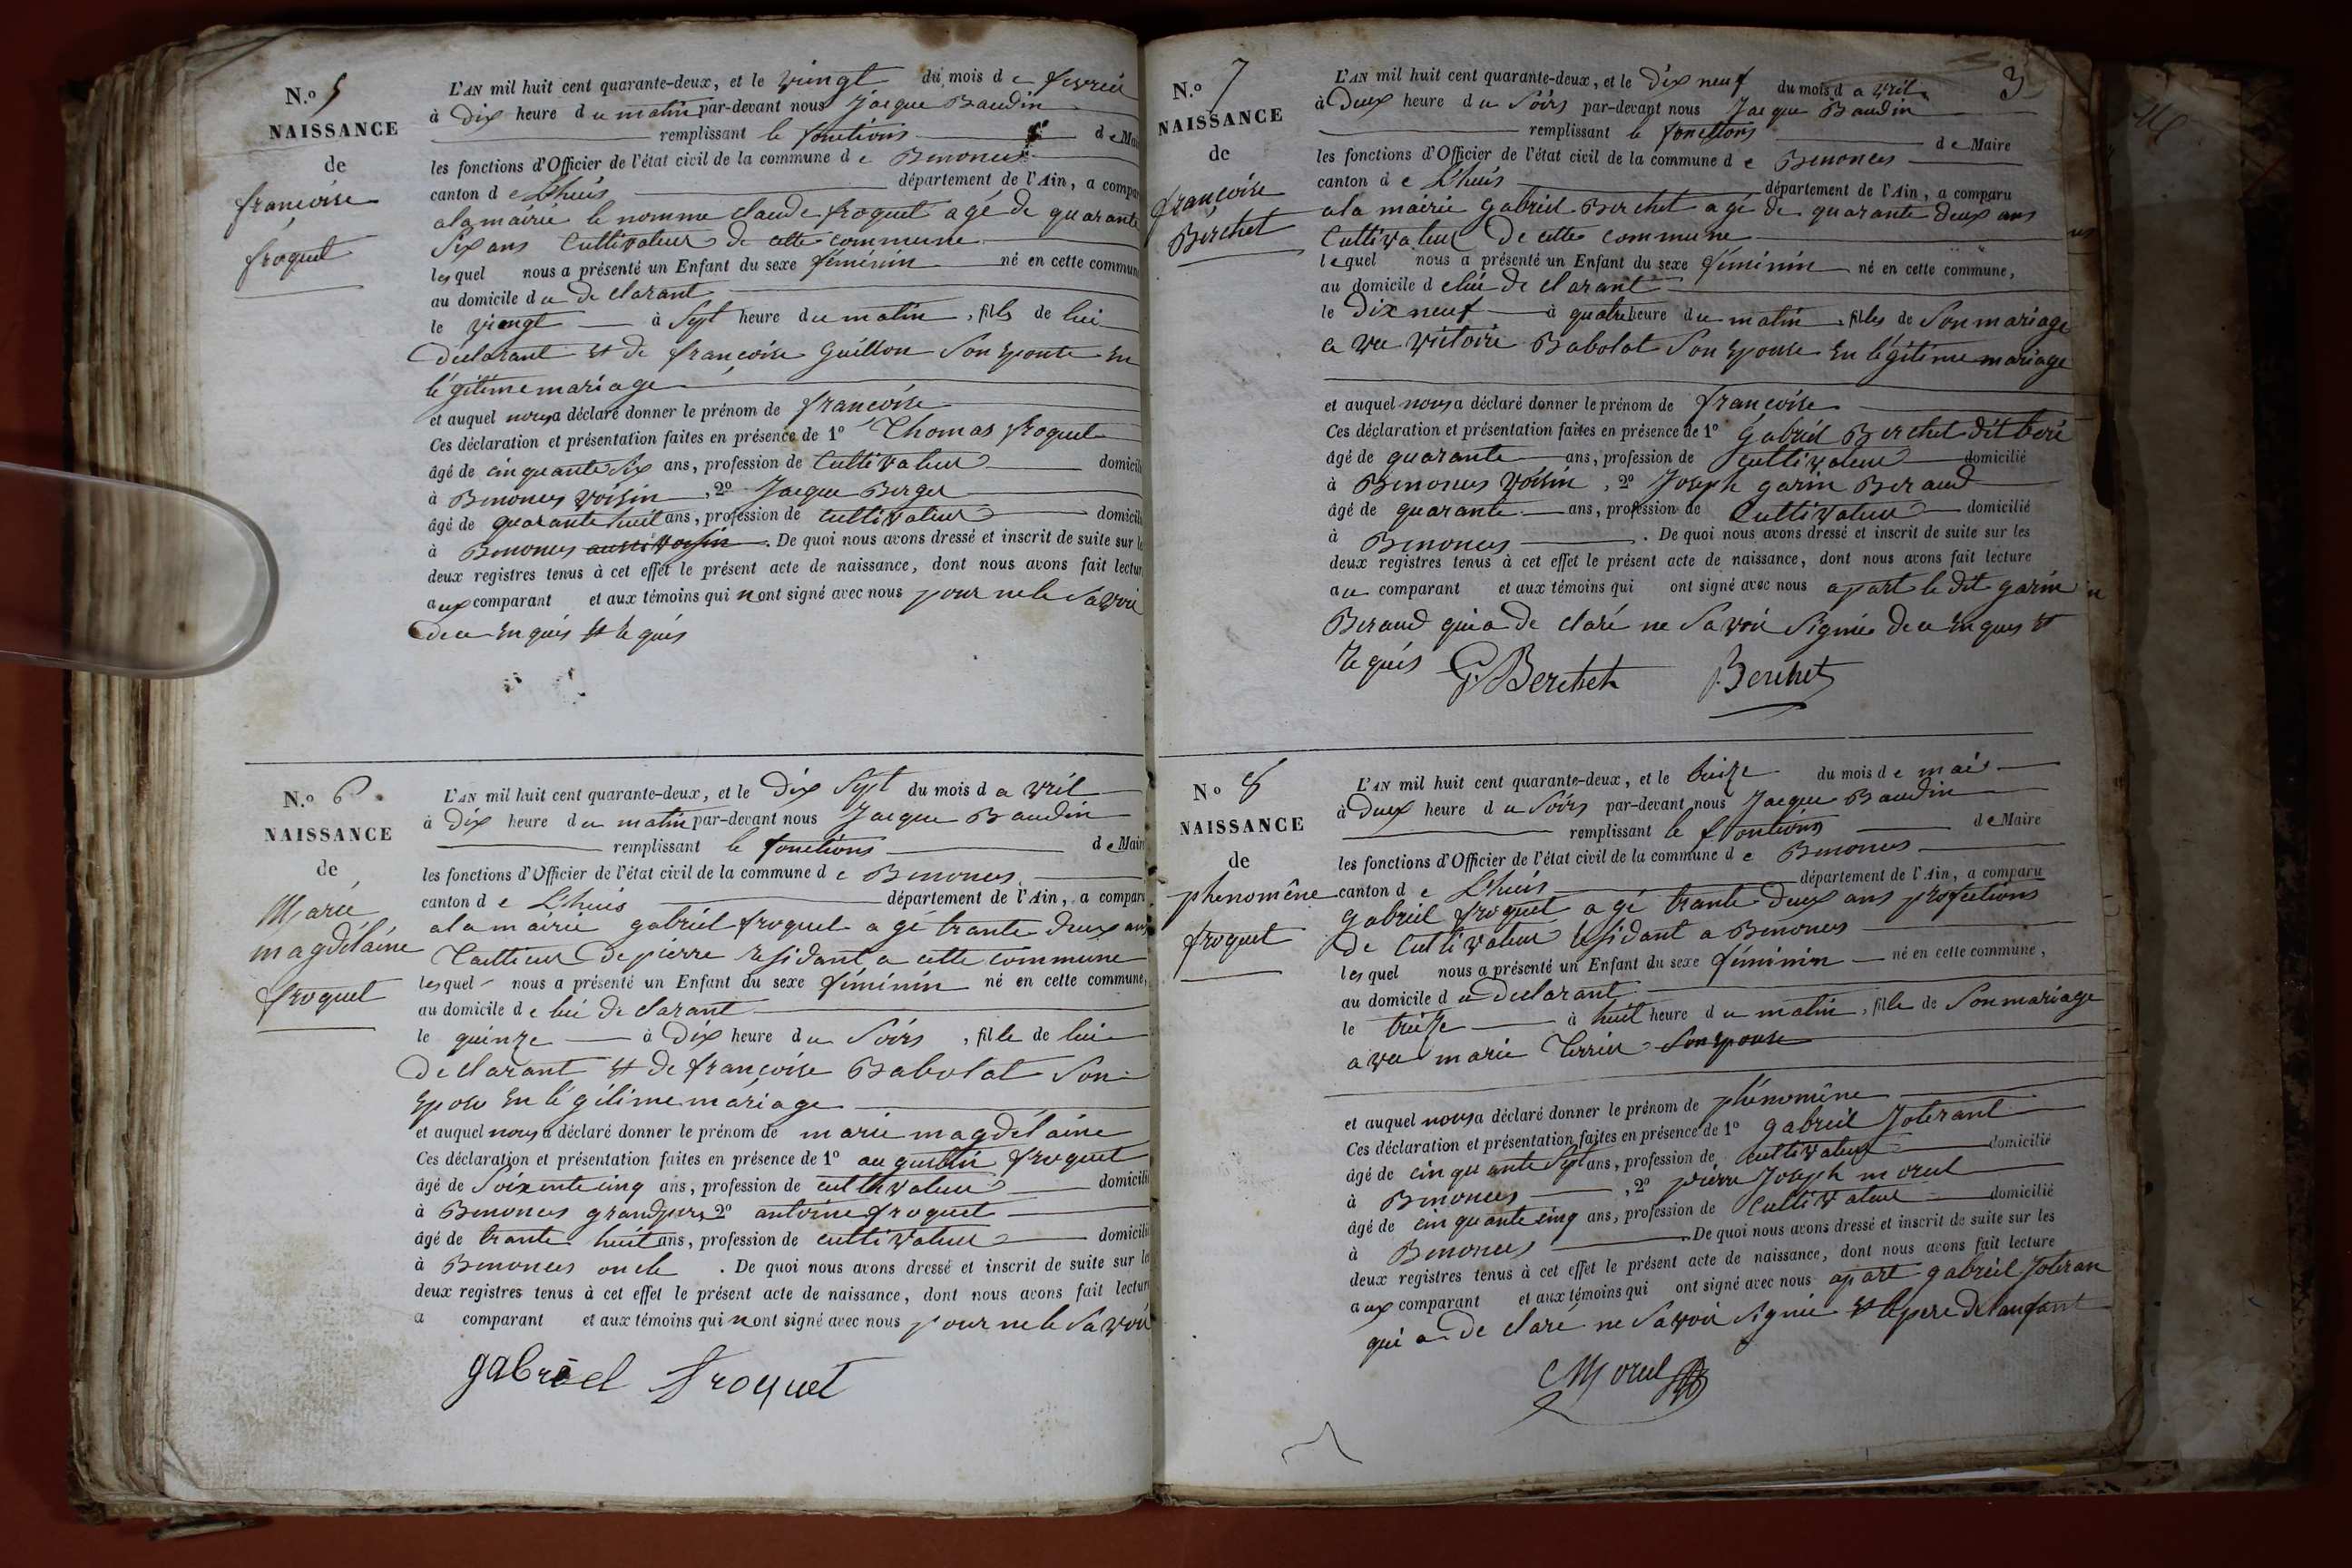 N.o 5
NAISSANCE
de
francoise
froquet
L'AN mil huit cent quarante-deux, et le vingt du mois de fevrié
à Dix heure du matin par-devant nous Jacque Baudin
remplissant le fonctions de Mai
les fonctions d'Officier de l'état civil de la commune de Benonces
canton de L'huis département de l'Ain, a compar
ala mairie le nomme claude froquet agé de quarante
Six ans Cultivateur de cette commune
lesquel nous a présenté un Enfant du sexe féminin né en cette commun
au domicile du De clarant
le vingt à Sept heure du matin, fille de lui
Declarant et de françoise Guillon Son Epouse En
légitime mariage
et auquel nous a déclaré donner le prénom de françoise
Ces déclaration et présentation faites en présence de 1o Thomas froquet
âgé de cinquante Six ans, profession de Cultivateur domicili
à Benonces voisin, 2o Jacque Berger
âgé de quarante huit ans, profession de Cultivateur domicili
à Benonces aussi voisin. De quoi nous avons dressé et inscrit de suite sur le
deux registres tenus à cet effet le présent acte de naissance, dont nous avons fait lectur
aux comparant et aux témoins qui nont signé avec nous pour ne le Savoir
de ce Enquis et Requis
N.o 6
NAISSANCE
de
Marie
magdélaine
froquet
L'AN mil huit cent quarante-deux, et le Dix Sept du mois d avril
à Dix heure du matin par-devant nous Jacque Baudin
remplissant le fonctions de Mair
les fonctions d'Officier de l'état civil de la commune de Benonces
canton de L'huis département de l'Ain, a compar
ala mairie gabriel froquet agé trante Deux ans
Tallieur De pierre Residant a cette commune
lesquel nous a présenté un Enfant du sexe féminin né en cette commune,
au domicile de lui De clarant
le quinze à Dix heure du Soirs, fille de lui
Declarant et De françoise Babolat Son
Epose En légitime mariage
et auquel nous a déclaré donner le prénom de marie magdélaine
Ces déclaration et présentation faites en présence de 1o augustin froquet
âgé de Soixente cinq ans, profession de cultivateur domicili
à Benonces grandpere, 2o antoine froquet
âgé de trante huit ans, profession de cultivateur domicili
à Benonces oncle. De quoi nous avons dressé et inscrit de suite sur le
deux registres tenus à cet effet le présent acte de naissance, dont nous avons fait lectur
a comparant et aux témoins qui nont signé avec nous pour ne le Savoir
gabriel froquet
3
N.o 7
NAISSANCE
de
françoise
Berchet
L'AN mil huit cent quarante-deux, et le Dix neuf du mois d avril
à Deux heure du Soirs par-devant nous Jacque Baudin
remplissant le fonctions de Maire
les fonctions d'Officier de l'état civil de la commune de Benonces
canton de L'huis département de l'Ain, a comparu
ala mairie Gabriel Berchet agé de quarante deux ans
Cultivateur De cette commune
lequel nous a présenté un Enfant du sexe féminin né en cette commune,
au domicile de lui De clarant
le Dix neuf à quatre heure du matin, filles de Son mariage
a ve victoire Babolat Son Epouse En légitime mariage
et auquel nous a déclaré donner le prénom de françoise
Ces déclaration et présentation faites en présence de 1o Gabriel Berchet dit
âgé de quarante ans, profession de Cultivateur domicilié
à Benonces Voisin, 2o Joseph garin Beraud
âgé de quarante ans, profession de Cultivateur domicilié
à Benonces. De quoi nous avons dressé et inscrit de suite sur les
deux registres tenus à cet effet le présent acte de naissance, dont nous avons fait lecture
au comparant et aux témoins qui ont signé avec nous apart le dit garin
Beraud qui a de claré ne Savoir Signée de ce Enques et
Requis G. Berchet Berchet
N.o 8
NAISSANCE
de
phenomêne
froquet
L'AN mil huit cent quarante-deux, et le treize du mois de mais
à Deux heure du Soirs par-devant nous Jacque Baudin
remplissant le fonctions de Maire
les fonctions d'Officier de l'état civil de la commune de Benonces
canton de L'huis département de l'Ain, a comparu
Gabriel froquet agé trante Deux ans profections
De Cultivateur Residant a Benonces
lesquel nous a présenté un Enfant du sexe féminin né en cette commune,
au domicile du Declarant
le treize à huit heure du matin, fille de Son mariage
a vec marie Terrier Son Epouse
et auquel nous a déclaré donner le prénom de phénomêne
Ces déclaration et présentation faites en présence de 1o gabriel Joterant
âgé de cinquante Sept ans, profession de cultivateur domicilié
à Benonces, 2o pierre Joseph morel
âgé de cinquante cinq ans, profession de Cultivateur domicilié
à Benonces. De quoi nous avons dressé et inscrit de suite sur les
deux registres tenus à cet effet le présent acte de naissance, dont nous avons fait lecture
aux comparant et aux témoins qui ont signé avec nous apart gabriel Joteran
qui a De claré ne Savoir Signée et le pere De lanfant
Morel